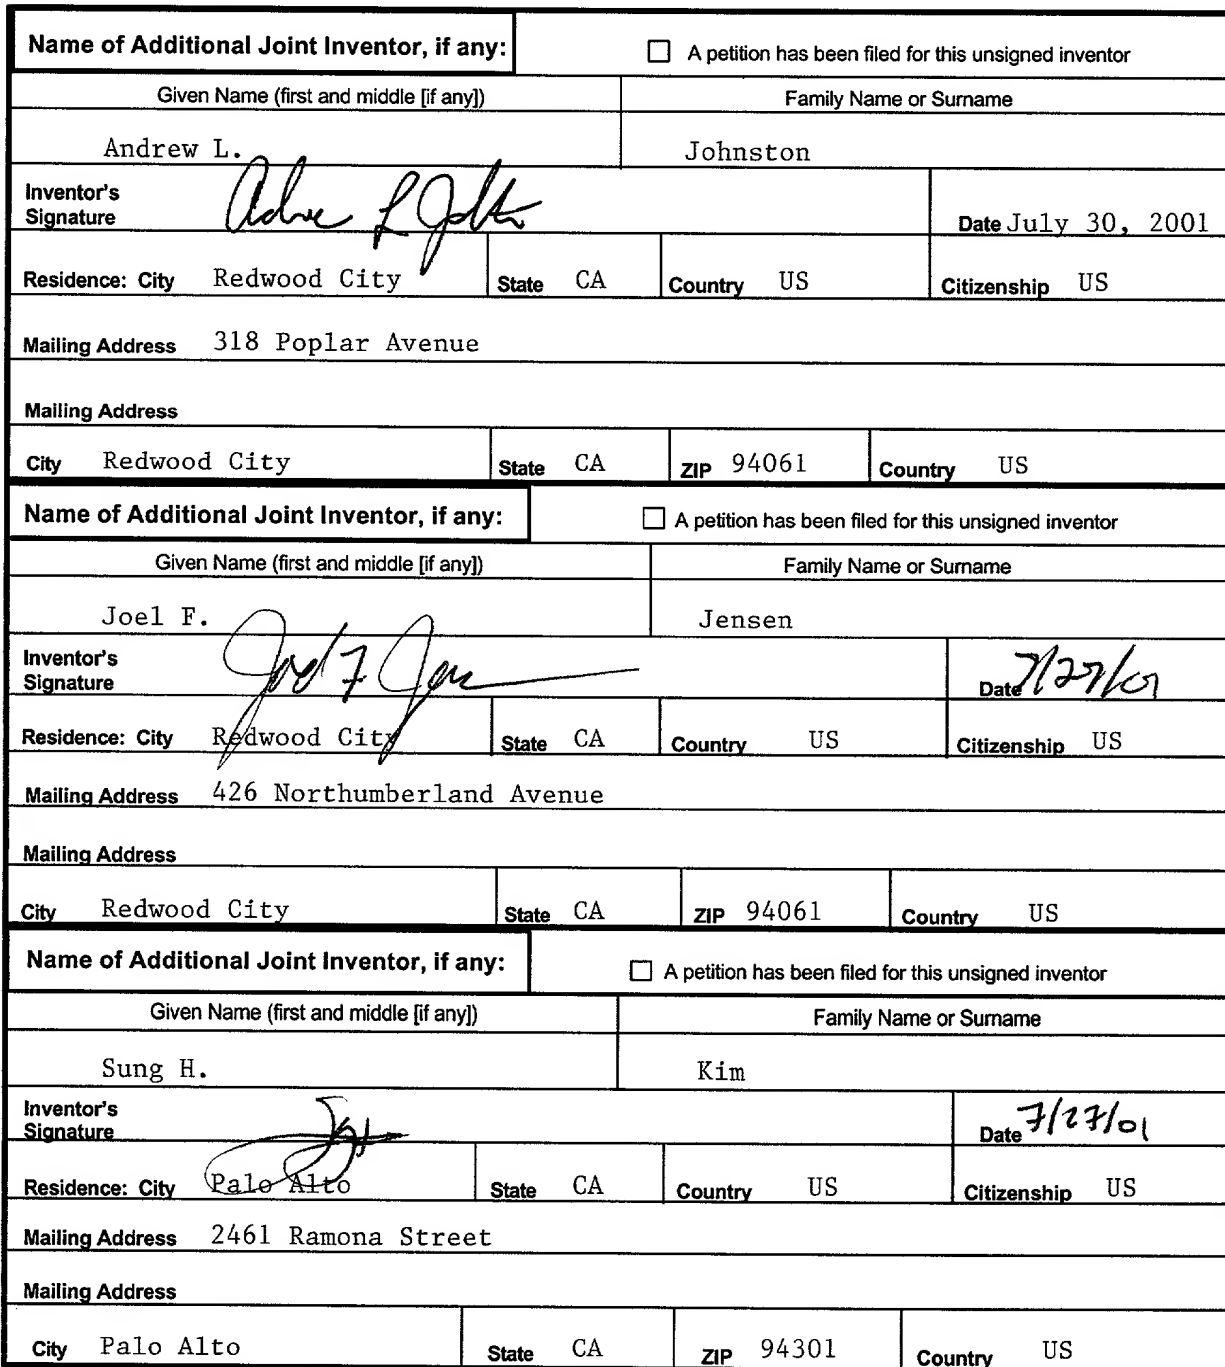 Name of Additional Joint Inventor, if any: ☐ A petition has been filed for this unsigned inventor
Given Name (first and middle [if any]) Family Name or Surname
Andrew L. Johnston
Inventor's
Signature Date July 30, 2001
Residence: City Redwood City State CA Country US Citizenship US
Mailing Address 318 Poplar Avenue
Mailing Address
City Redwood City State CA ZIP 94061 Country US
Name of Additional Joint Inventor, if any: ☐ A petition has been filed for this unsigned inventor
Given Name (first and middle [if any]) Family Name or Surname
Joel F. Jensen
Inventor's
Signature Joel F Jen Date 7/27/01
Residence: City Redwood City State CA Country US Citizenship US
Mailing Address 426 Northumberland Avenue
Mailing Address
City Redwood City State CA ZIP 94061 Country US
Name of Additional Joint Inventor, if any: ☐ A petition has been filed for this unsigned inventor
Given Name (first and middle [if any]) Family Name or Surname
Sung H. Kim
Inventor's
Signature Date 7/27/01
Residence: City Palo Alto State CA Country US Citizenship US
Mailing Address 2461 Ramona Street
Mailing Address
City Palo Alto State CA ZIP 94301 Country US